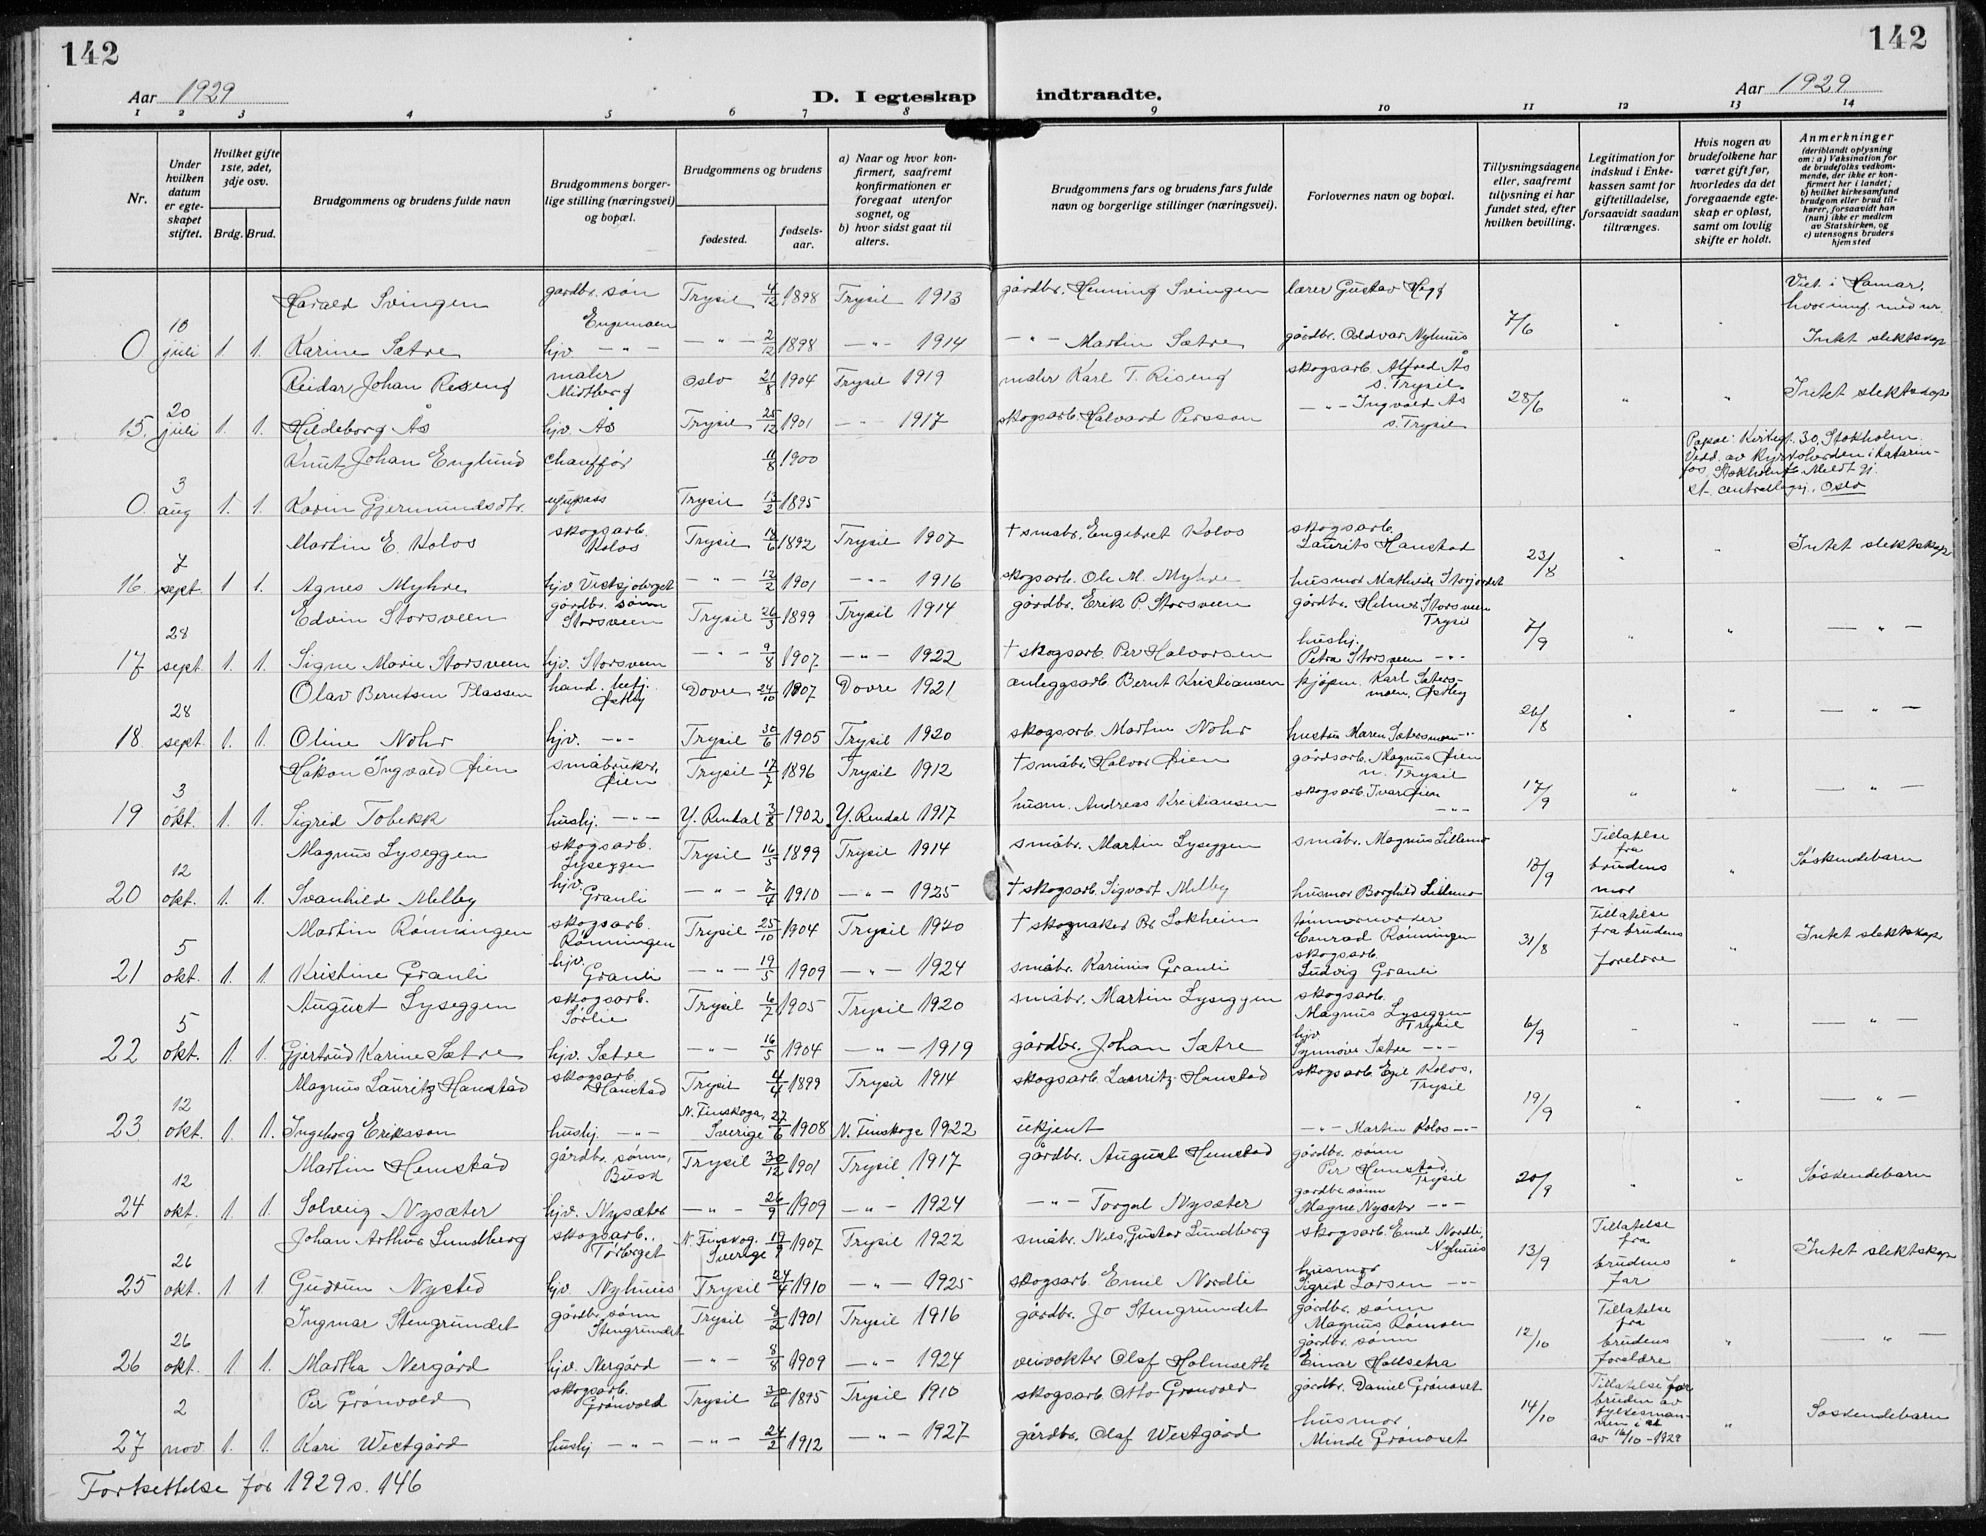 142
142
Aar 1929
D. I egteskap
indtraadte.
Aar 1929
1 2 3 4 5 6 7 8 9 10 11 12 13 14
Nr.
Under hvilken datum er egteskapet stiftet.
Hvilket gifte 1ste, 2det, 3dje osv.
Brdg. Brud.
Brudgommens og brudens fulde navn
Brudgommens borgerlige stilling (næringsvei) og bopæl.
Brudgommens og brudens
fødested.
fødselsaar.
a) Naar og hvor konfirmert, saafremt konfirmationen er foregaat utenfor sognet, og
b) hvor sidst gaat til alters.
Brudgommens fars og brudens fars fulde navn og borgerlige stillinger (næringsvei).
Forlovernes navn og bopæl.
Tillysningsdagene eller, saafremt tillysning ei har fundet sted, efter hvilken bevilling.
Legitimation for indskud i Enkekassen samt for giftetilladelse, forsaavidt saadan tiltrænges.
Hvis nogen av brudefolkene har været gift før, hvorledes da det foregaaende egteskap er opløst, samt om lovlig skifte er holdt.
Anmerkninger
(deriblandt oplysning om: a) Vaksination for de brudefolks vedkommende, der ikke er konfirmert her i landet; b) hvilket kirkesamfund brudgom eller brud tilhører, forsaavidt han (hun) ikke er medlem av Statskirken, og c) utensogns bruders hjemsted
Harald Svingen gardbr. søn Engemoen Trysil 4/12 1898 Trysil 1913 gårdbr. Henning Svingen lærer Gustav Høgf Viet i Hamar,
0 10 juli 1. 1. Karine Sætre hjv. — " — — " — 2/12 1898 — " — 1914 — " — Martin Sætre gårdbr. Oddvar Nyhuus 7/6 " " Intet slektskap
Reidar Johan Riseng maler Midtberg Oslo 21/8 1904 Trysil 1919 maler Karl T. Riseng skogsarb. Alfred Ås s. Trysil.
15. 20 juli 1. 1. Hildeborg Ås hjv. Ås Trysil 25/12 1901 — " — 1917 skogsarb. Halvard Persson — " — Ingvald Ås s. Trysil 28/6 " " Intet slektskap
Knut Johan Englund chauffør 11/8 1900
0. 3 aug 1. 1. Karin Gjermundsdtr. Trysil 13/2 1895 30, Stokholm
Oslo
Martin E. Kolos skogsarb. Kolos Trysil 18/6 1892 Trysil 1907 † småbr. Engebret Kolos skogsarb. Laurits Hanstad
16 7 sept. 1 1. Agnes Myhre hjv. — " — 12/2 1901 — " — 1916 skogsarb. Ole M. Myhre husmor Mathilde Storjordet 23/8 " " Intet slektskap
Edvin Storsveen gårdbr. sønn Storsveen Trysil 26/3 1899 Trysil 1914 gårdbr. Erik P. Storsveen gårdbr. Helmer Storsveen Trysil
17 28 sept. 1. 1. Signe Marie Storsveen hjv. Storsveen — " — 9/8 1907 — " — 1922 † skogsarb. Per Halvorsen hushj. Petra Storsveen — " — 7/9 " " — " —
Olav Berntsen Plassen hand. betj. Østby Dovre 24/10 1907 Dovre 1921 anleggsarb. Bernt Kristiansen kjøpm. Karl Sætersmoen, Østby
18. 28 sept. 1. 1. Oline Nohr hjv. — " — Trysil 30/6 1905 Trysil 1920 skogsarb. Martin Nohr hustru Maren Sætersmoen — " — 26/8 " " — " —
Håkon Ingvald Øien småbruker, Øien Trysil 17/7 1896 Trysil 1912 † småbr. Halvor Øien gårdsarb. Magnus Øien n. Trysil
19 3 okt. 1. 1. Sigrid Tobekk hushj. — " — Y. Rendal 3/8 1902 Y. Rendal 1917 husm. Andreas Kristiansen skogsarb. Ivar Øien — " — 17/9 " " — " —
Magnus Lyseggen skogsarb. Lyseggen Trysil 16/5 1899 Trysil 1914 småbr. Martin Lyseggen småbr. Magnus Lillemo
20 12 okt. 1. 1. Svanhild Melby hjv. Granli — " — 7/4 1910 — " — 1925 † skogsarb. Sigvart Melby husmor Borghild Lillemo 17/9 Tillatelse fra brudens mor " Søskendebarn
Martin Rønningen skogsarb. Rønningen Trysil 25/10 1904 Trysil 1920 † Lokheim Conrad Rønningen
21 5 okt. 1. 1. Kristine Granli hjv. Granli — " — 19/5 1909 — " — 1924 småbr. Karinius Granli skogsarb. Ludvig Granli 31/8 Tillatelse fra brudens foreldre " Intet slektskap
August Lyseggen skogsarb. Sørlie Trysil 6/7 1905 Trysil 1920 småbr. Martin Lyseggen skogsarb. Magnus Lyseggen Trysil
22 5 okt. 1. 1. Gjertrud Karine Sætre hjv. Sætre — " — 16/5 1904 — " — 1919 gårdbr. Johan Sætre hjv. Synnøve Sætre — " — 6/9 " " — " —
Magnus Lauritz Hanstad skogsarb. Hanstad Trysil 4/4 1899 Trysil 1914 skogsarb. Lauritz Hanstad skogsarb. Egil Kolos, Trysil
23 12 okt. 1. 1. Ingeborg Eriksson hushj. — " — N. Finskoga, Sverige 27/6 1908 N. Finskoga 1922 ukjent — " — Martin Kolos — " — 19/9 " " — " —
Martin Hemstad gårdbr. sønn, Busk Trysil 30/12 1901 Trysil 1917 gårdbr. August Hemstad gårdbr. sønn Per Hemstad, Trysil
24 12 okt. 1. 1. Solveig Nysæter hjv. Nysæter — " — 26/9 1909 — " — 1924 — " — Torgal Nysæter gårdbr. sønn Magne Nysæter — " — 20/9 " " Søskendebarn
Johan Arthur Lundberg skogsarb. Tørberget N. Finskog. Sverige 19/9 1907 Trysil 1922 småbr. Nils Gustav Lundberg skogsarb. Emil Nordli, Nyhuus
25 26 okt. 1 1 Gudrun Nysted hjv. Nyhuus Trysil 24/4 1910 — " — 1925 skogsarb. Emil Nordli husmor Sigrid Larsen — " — 13/9 Tillatelse fra brudens far " Intet slektskap
Ingmar Stengrundet gårdbr. sønn Stengrundet Trysil 2/2 1901 Trysil 1916 gårdbr. Jo Stengrundet gårdbr. sønn Magnus Rømoen
26 26 okt. 1 1. Martha Nergård hjv. Nergård — " — 8/8 1909 — " — 1924 veivokter Olaf Holmseth gårdbr. sønn Einar Hollsetra 12/10 Tillatelse fra brudens foreldre " — " —
Per Grønvold skogsarb. Grønvold Trysil 30/6 1895 Trysil 1910 skogsarb. Otto Grønvold gårdbr. Daniel Grønoset
27 2 nov. 1. 1. Kari Westgård hushj — " — — " — 24/2 1912 — " — 1927 gårdbr. Olaf Westgård husmor Minda Grønoset 14/10 Tillatelse for bruden av fylkesmannen av 16/10-1929 " Søskendebarn
Fortsettelse for 1929 s. 146